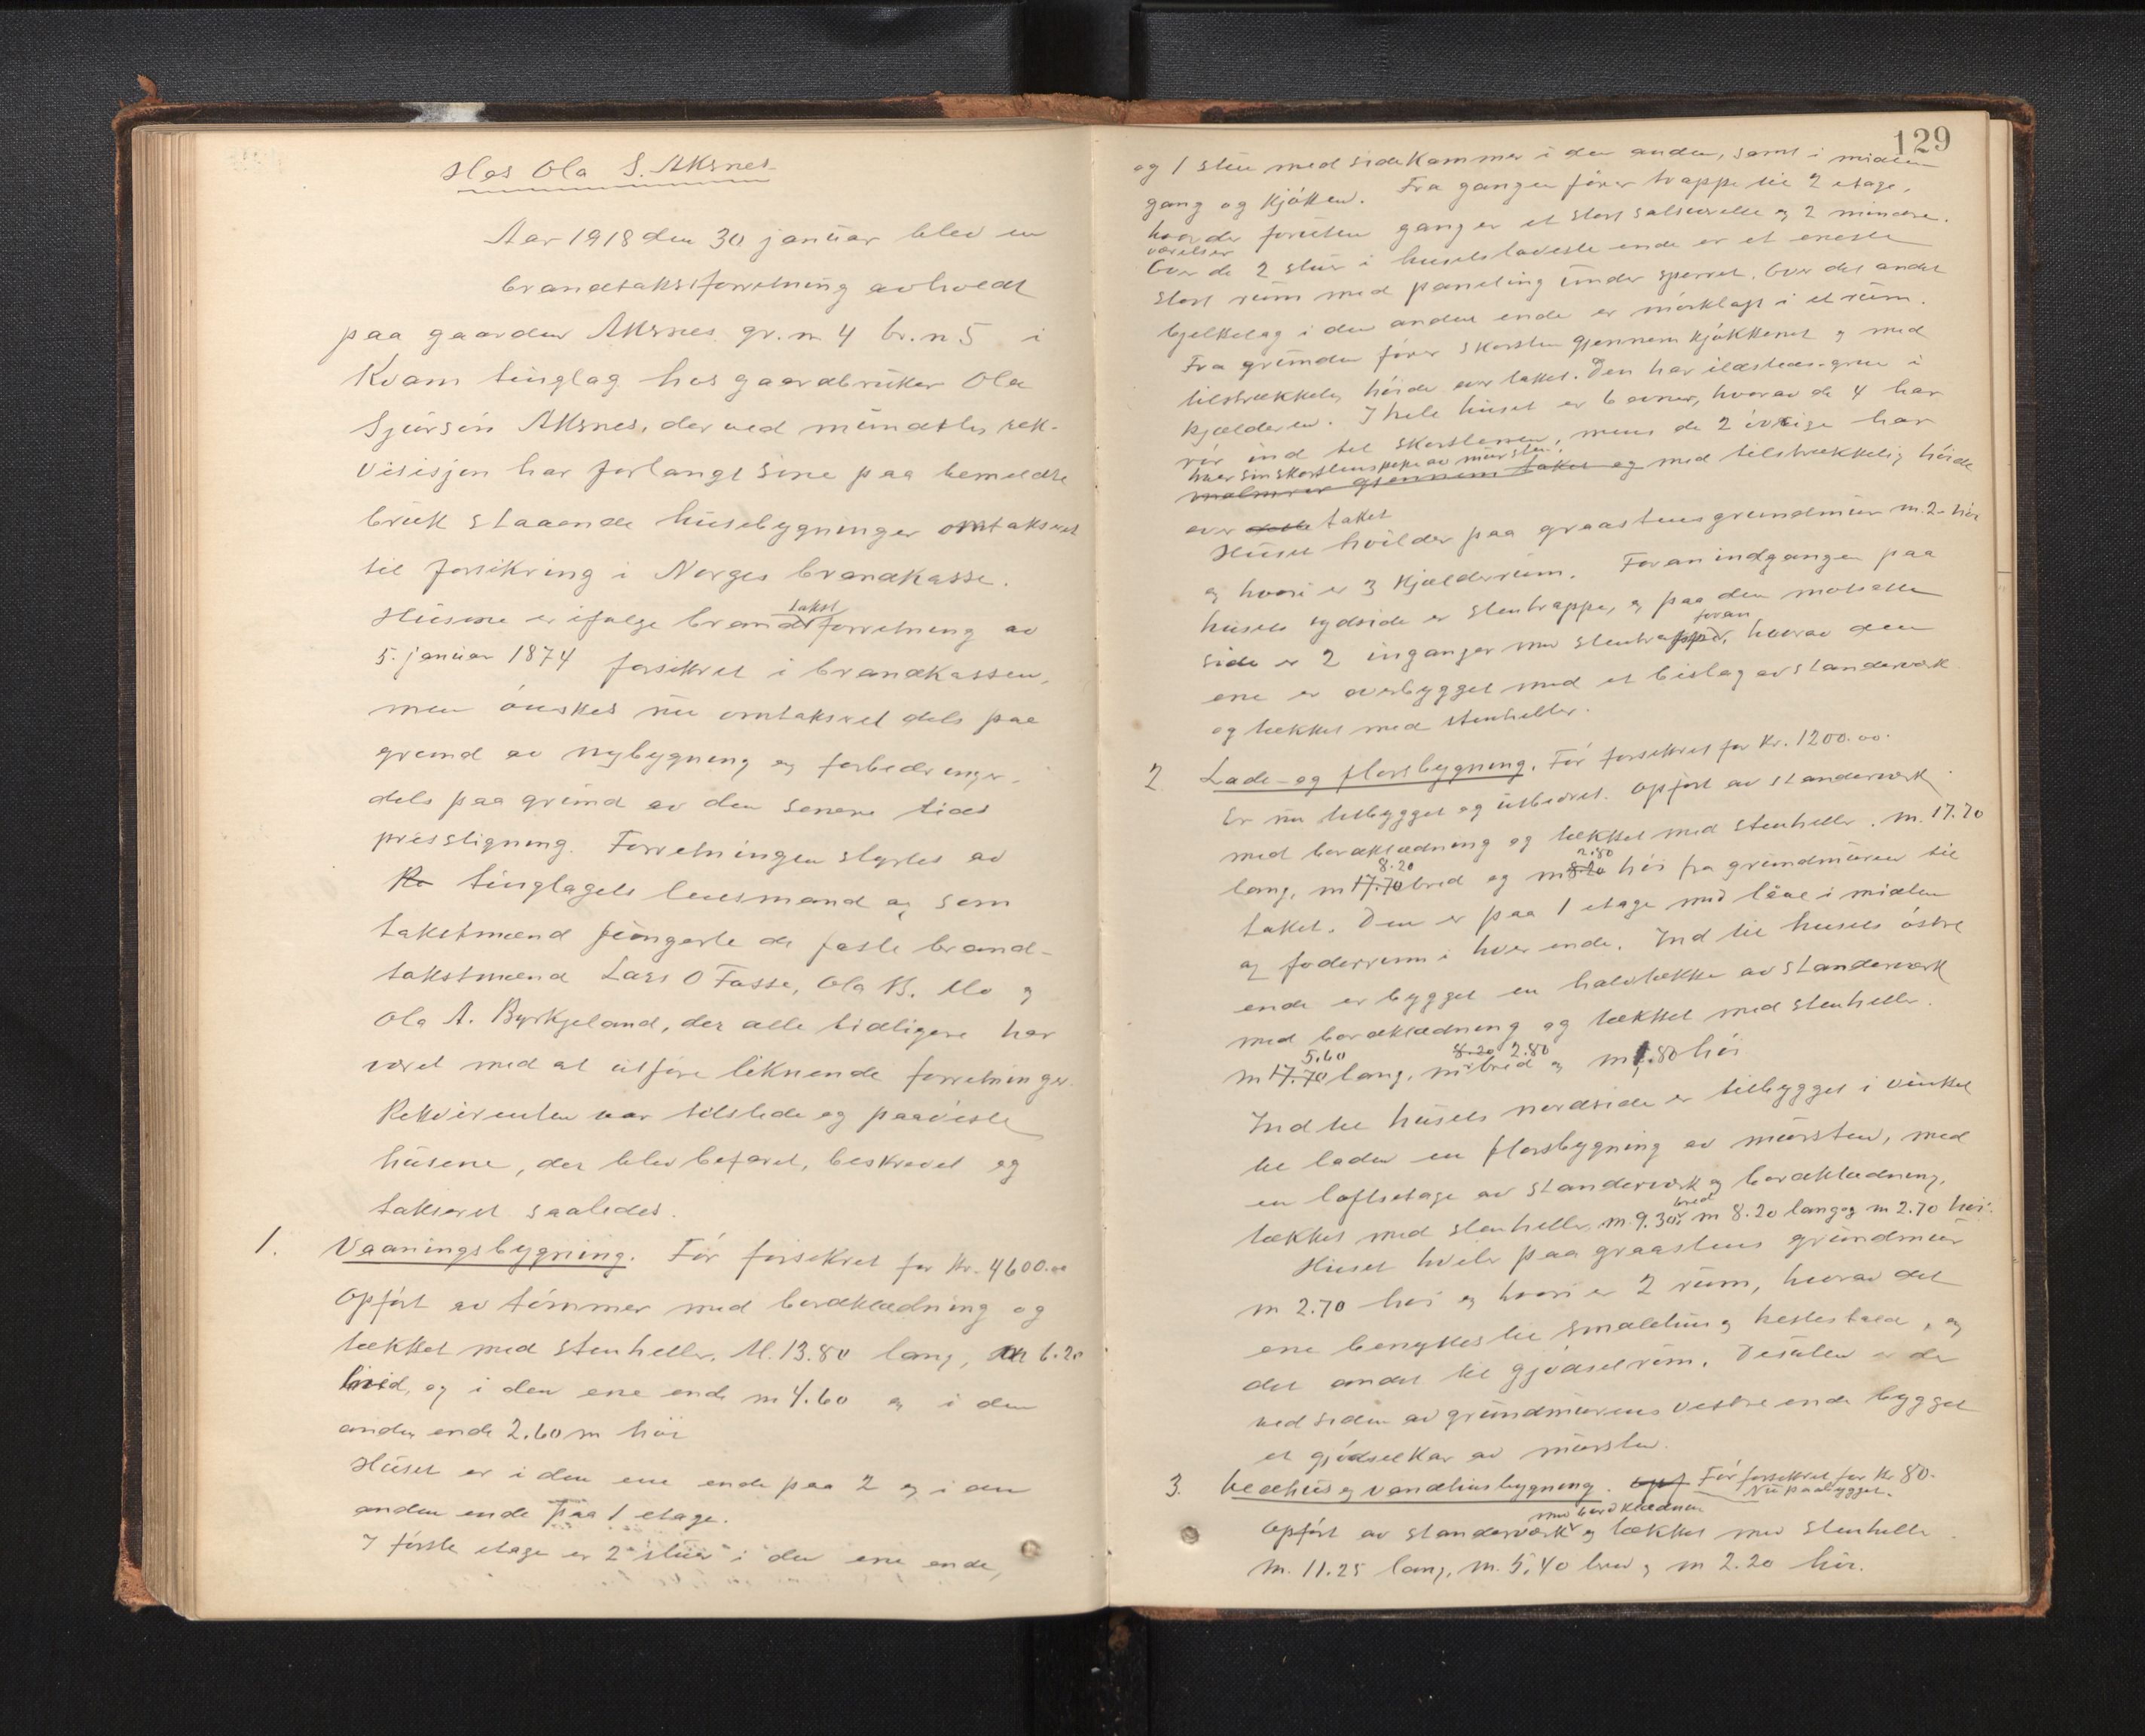 Hos Ola S. Aksnes.
Aar 1918 den 30 januar blev en
brandtakstforretning avholdt
paa gaarden Aksnes gr. n. 4 br. n 5 i
Kvam tinglag hos gaardbruker Ola
Sjursøn Aksnes, der ved mundtlig rek-
visisjon har forlangt sine paa bemeldte
bruk staaende husebygninger omtakseret
til forsikring i Norges brandkasse.
Husene er ifølge brandtakstforretning av
5. januar 1874 forsikret i brandkassen,
men ønskes nu omtakseret dels paa
grund av nybygning og forbedringer,
dels paa grund av den senere tids
prisstigning. Forretningen styrtes av
tinglagets lensmand og som
takstmænd fungerte de faste brand-
takstmænd Lars O Tosse, Ola B. Mo og
Ola A. Byrkjeland, der alle tidligere har
været med at utføre liknende forretninger.
Rekvirenten var tilstede og paaviste
husene, der blev befaret, beskrevet og
takseret saaledes.
1. Vaaningsbygning. Før forsikret for Kr. 4600.00
Opført av tømmer med bordklædning og
tækket med stenheller. M. 13.80 lang, m 6.20
bred, og i den ene ende m 4.60 og i den
anden ende 2.60 m høi
Huset er i den ene ende paa 2 og i den
anden ende paa 1 etage.
I første etage er 2 stuer i den ene ende,
129
og 1 stue med sidekammer i den anden, samt i midten
gang og kjøkken. Fra gangen fører trappe til 2 etage,
hvor der foruten gang er et stort salsværelse og 2 mindre
værelser
Over de 2 stuer i husets laveste ende er et eneste
stort rum med paneling under sperret. Over det andet
bjelkelag i den anden ende er mørkloft i et rum.
Fra grunden fører skorsten gjennem kjøkkenet og med
tilstrækkelig høide over taket. Den har ildsteds-grue i
kjælderen. I hele huset er 6 ovner, hvorav de 4 har
rør ind til skorstenen, mens de 2 øvrige har
hver sin skorstenspipe av mursten
malmrør gjennem taket og med tilstrækkelig høide
over dette taket
Huset hviler paa graastens grundmur m. 2. høi
og hvori er 3 kjælderrum. Foran indgangen paa
husets sydside er stentrappe, og paa den motsatte
foran
side er 2 inganger med stentrapper, hvorav den
ene er overbygget med et bislag av standerværk
og tækket med stenheller.
2. Lade- og florsbygning. Før forsikret for Kr. 1200.00.
Er nu tilbygget og utbedret. Opført av standerværk
med bordklædning og tækket med stenheller. m. 17.70
8.20 2.80
lang, m 17.70 bred og m 8.20 høi fra grundmuren til
taket. Den er paa 1 etage med låve i midten
og foderrum i hver ende. Ind til husets østre
ende er bygget en halvtække av standerværk
med bordklædning og tækket med stenheller.
5.60 8.20 2.80
m 17.70 lang, m bred og m 1.80 høi
Ind til husets nordside er tilbygget i vinkel
til laden en florsbygning av mursten, med
en loftsetage av standerværk og bordklædning,
bred
tækket med stenheller, m. 9.30, m 8.20 lang og m 2.70 høi.
Huset hviler paa graastens grundmur
m 2.70 høi og hvori er 2 rum, hvorav det
ene benyttes til smalehus og hestestald, og
det andet til gjødselrum. Desuten er der
ved siden av grundmurens vestre ende bygget
et gjødselkar av mursten.
3. Vedhus og vandhusbygning. opf Før forsikret for Kr 80.
Nu paabygget.
med bordklædning
Opført av standerværk og tækket med stenheller
m. 11.25 lang, m. 5.40 bred og m 2.20 høi.